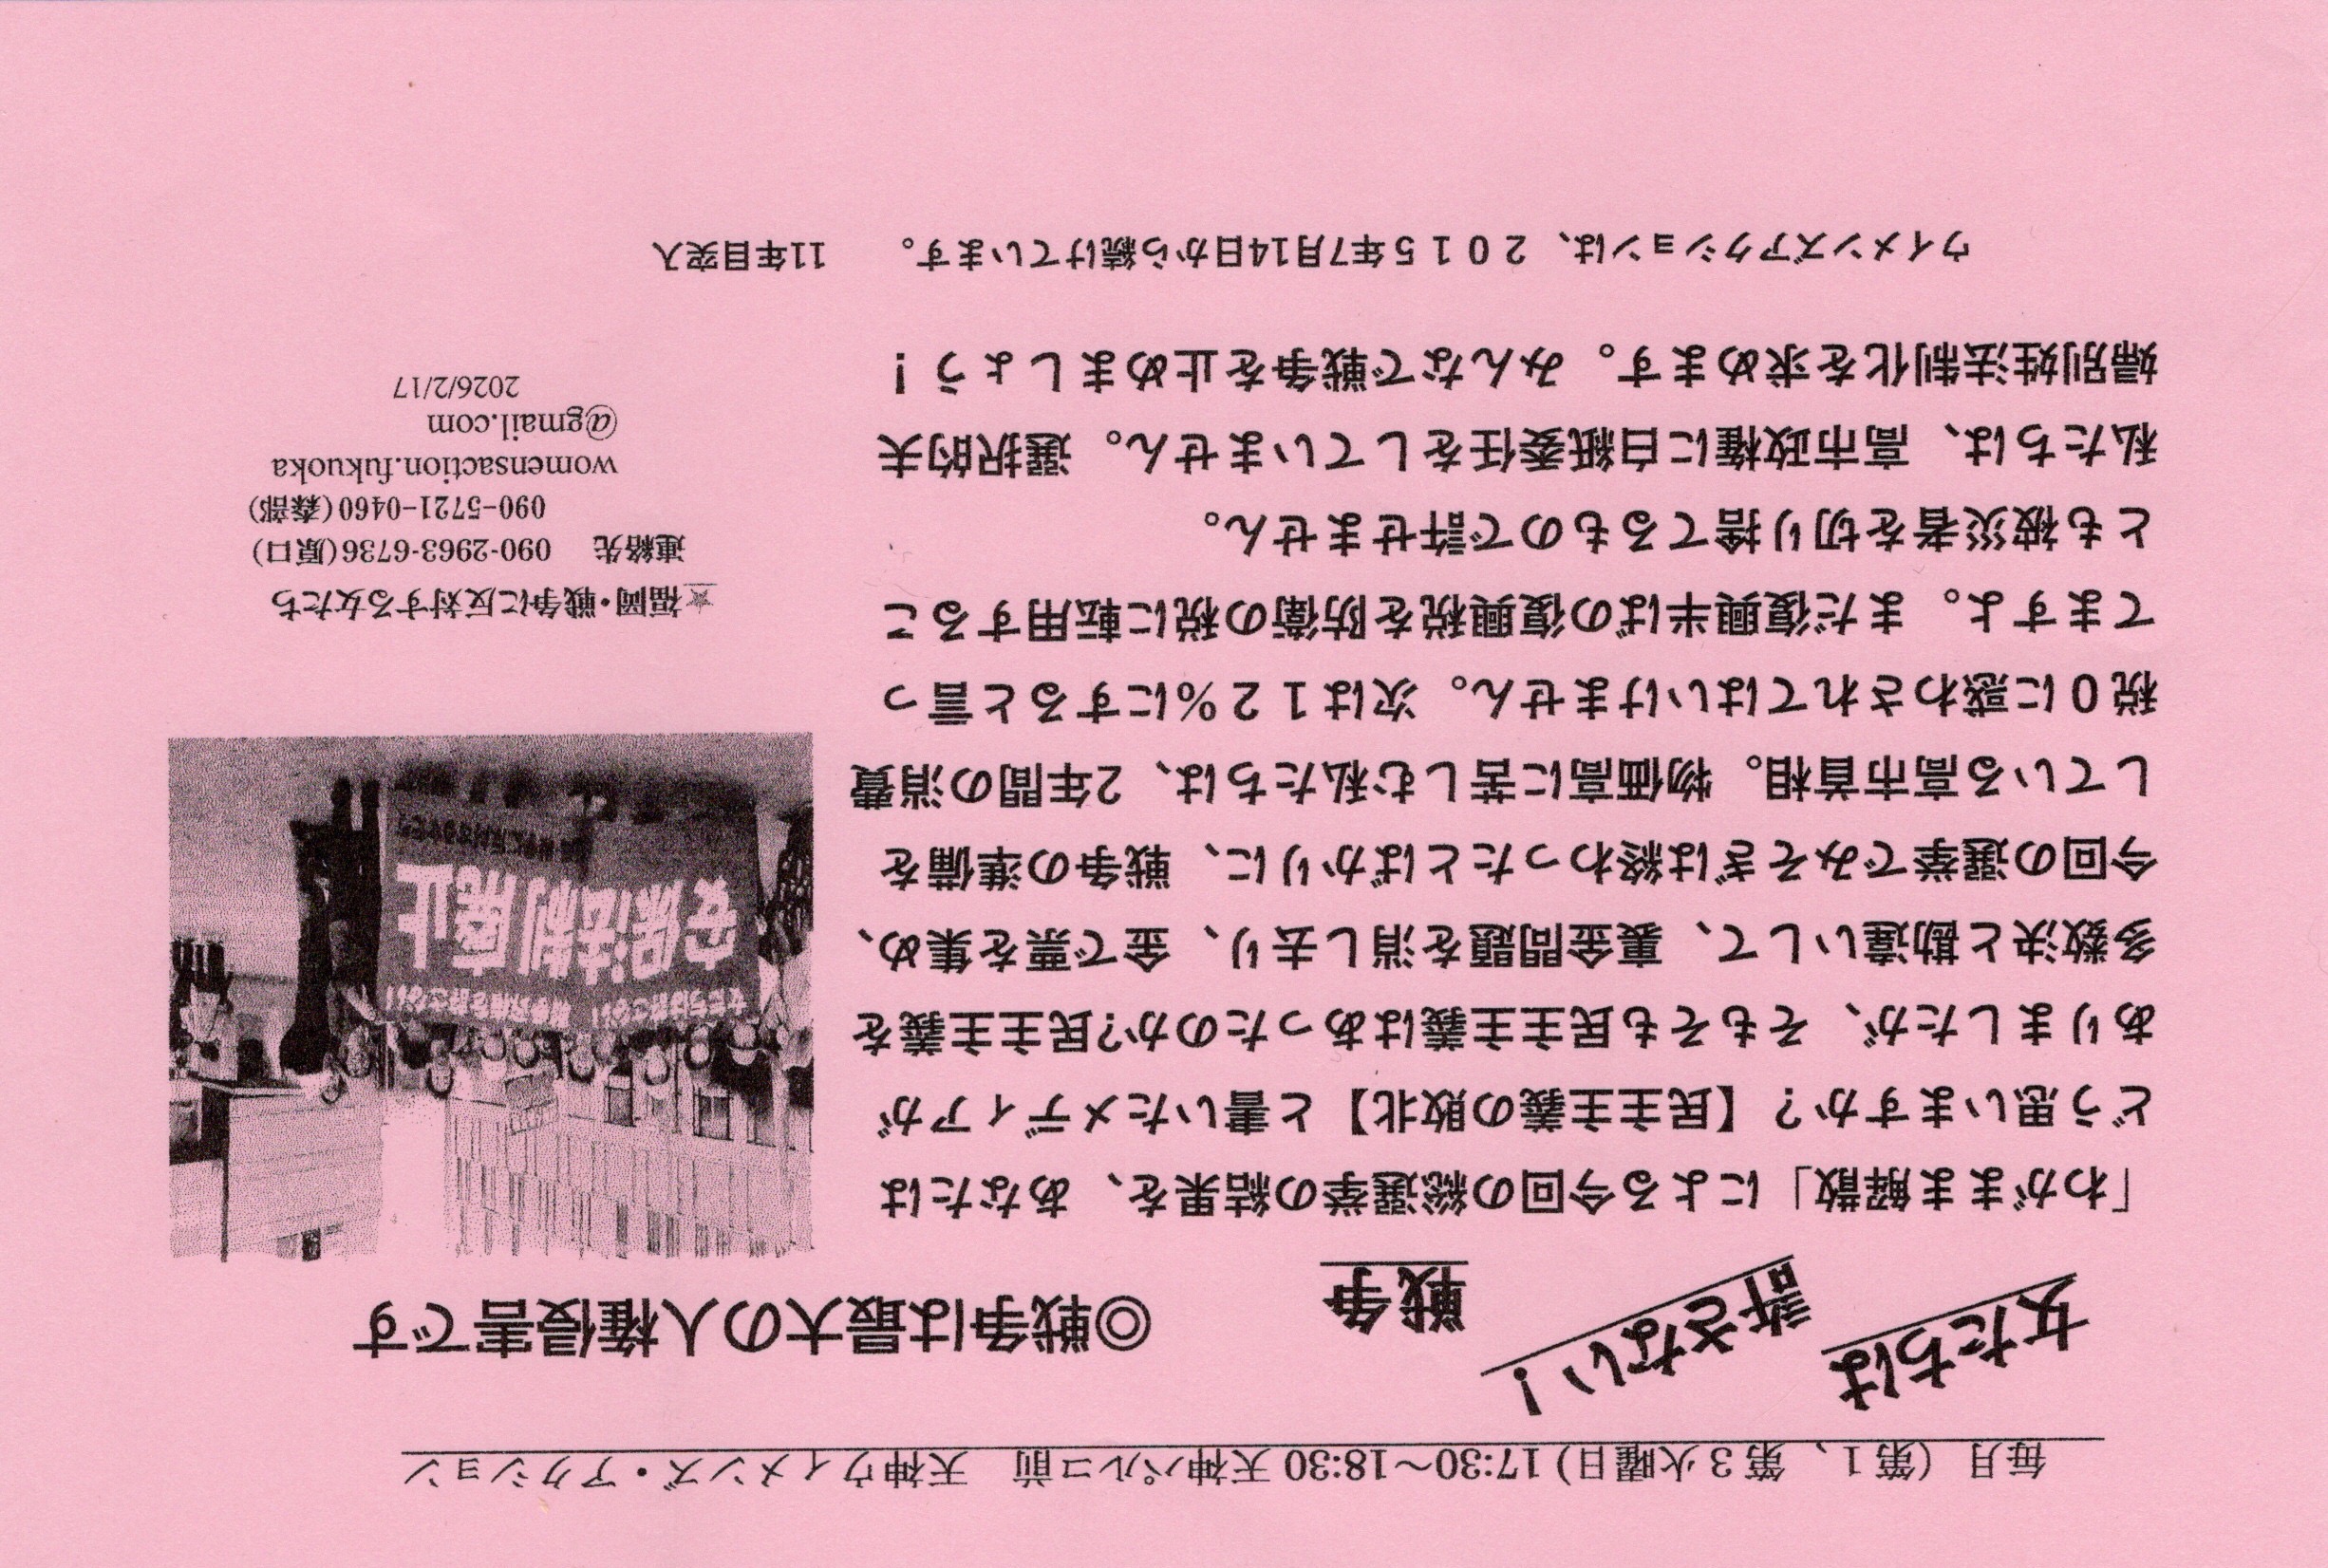 毎月（第１、第３火曜日）17:30～18:30 天神パルコ前　天神ウィメンズ・アクション
女たちは
許さない！
戦争
◎戦争は最大の人権侵害です
「わがまま解散」による今回の総選挙の結果を、あなたは
どう思いますか？【民主主義の敗北】と書いたメディアが
ありましたが、そもそも民主主義はあったのか?民主主義を
多数決と勘違いして、裏金問題を消し去り、金で票を集め、
今回の選挙でみそぎは終わったとばかりに、戦争の準備を
している高市首相。物価高に苦しむ私たちは、2年間の消費
税０に惑わされてはいけません。次は１２％にすると言っ
てますよ。まだ復興半ばの復興税を防衛の税に転用するこ
とも被災者を切り捨てるもので許せません。
私たちは、高市政権に白紙委任をしていません。選択的夫
婦別姓法制化を求めます。みんなで戦争を止めましょう！
安保法制廃止
★福岡・戦争に反対する女たち
連絡先　090-2963-6736(原口)
090-5721-0460(森部)
womensaction.fukuoka
@gmail.com
2026/2/17
ウイメンズアクションは、２０１５年7月14日から続けています。　11年目突入